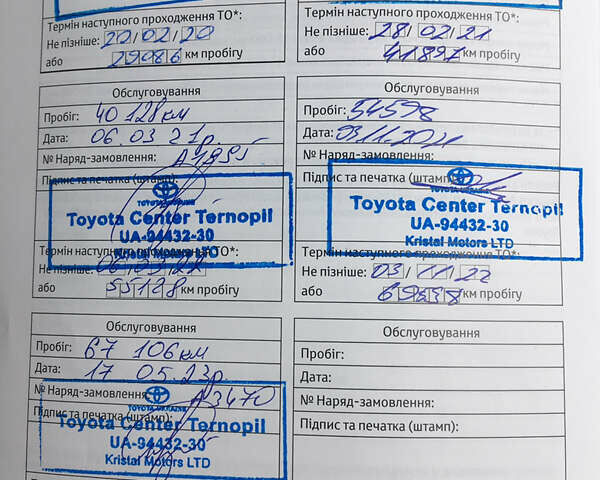 Термін наступного проходження ТО*:
Не пізніше: 20/02/20
або 29086 км пробігу
Термін наступного проходження ТО*:
Не пізніше: 28/02/21
або 41897 км пробігу
Обслуговування
Пробіг: 40 128км
Дата: 06.03 21р.
№ Наряд-замовлення:
Підпис та печатка (штамп):
TOYOTA UKRAINE
Toyota Center Ternopil
UA-94432-30
Kristal Motors LTD
Термін наступного проходження ТО*:
Не пізніше: 06/03/22
або 55128 км пробігу
Обслуговування
Пробіг: 54598
Дата: 03.11.2021
№ Наряд-замовлення:
Підпис та печатка (штамп):
TOYOTA UKRAINE
Toyota Center Ternopil
UA-94432-30
Kristal Motors LTD
Термін наступного проходження ТО*:
Не пізніше: 03/11/22
або 69598 км пробігу
Обслуговування
Пробіг: 67 106км
Дата: 17 05.23р
№ Наряд-замовлення: А3470
Підпис та печатка (штамп):
TOYOTA UKRAINE
Toyota Center Ternopil
UA-94432-30
Kristal Motors LTD
Обслуговування
Пробіг:
Дата:
№ Наряд-замовлення:
Підпис та печатка (штамп):